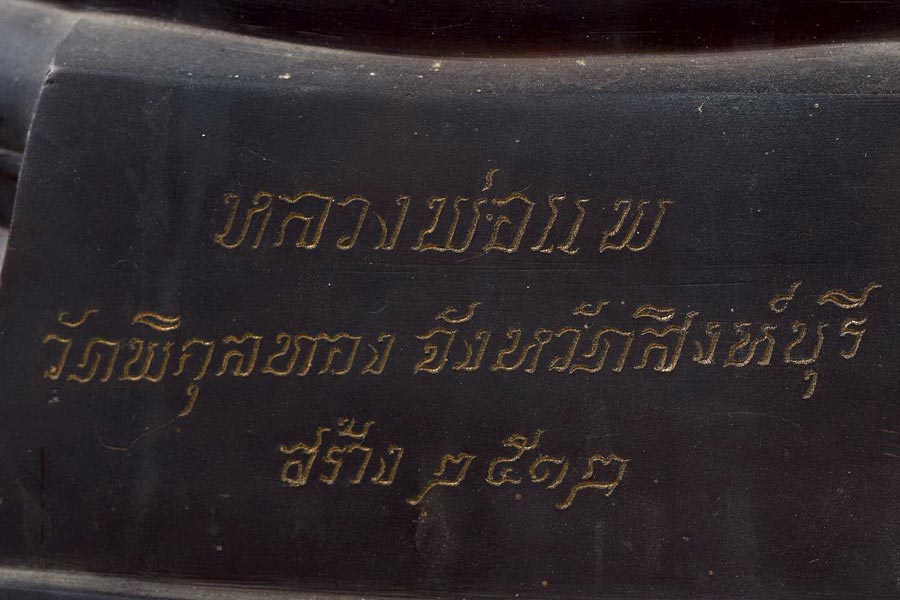 หลวงพ่อแพ
วัดพิกุลทอง จังหวัดสิงห์บุรี
สร้าง ๒๕๑๒